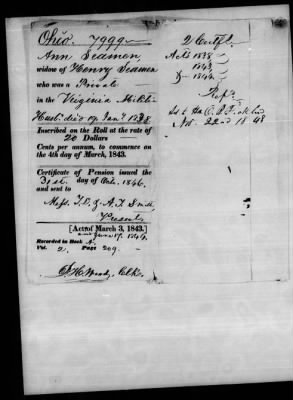 Ohio. 7999
Ann Seamen,
widow of Henry Seamen
who was a Private
in the Virginia Militia
Husb. died 17 Jany 1838
Inscribed on the Roll at the rate of
20 Dollars
Cents per annum, to commence on
the 4th day of March, 1843.
Certificate of Pension issued the
31st day of Oct. 1846.
and sent to
Messrs. I. D. & A. F. Smith
Present
[Act of March 3, 1843.]
and June 17. 1844.
Recorded in Book A.
Vol. 2. Page 209.
Clk.
2 Certfs.
Acts 1838
1843
& 1844
Nov. 22nd 1848